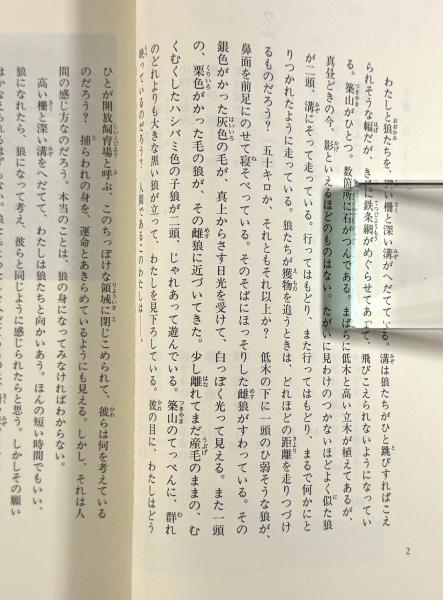 わたしと狼たちを、高い柵と深い溝がへだてている。溝は狼たちがひと跳びすればこえ
られそうな幅だが、きに鉄条網がめぐらせてあって、飛びこえられないようになってい
る。築山がひとつ。数箇所に石がつんである。まばらに低木と高い立木が植えてあるが、
真昼どきの今、影といえるほどのものはない。たがいに見わけのつかないほどよく似た狼
が二頭、溝にそって走っている。行ってはもどり、また行ってはもどり、まるで何かにと
りつかれたように走っている。狼たちが獲物を追うときは、どれほどの距離を走りつづけ
るものだろう？　五十キロか、それともそれ以上か？　低木の下に一頭のひ弱そうな狼が、
鼻面を前足にのせて寝そべっている。そのそばにほっそりした雌狼がすわっている。その
銀色がかった灰色の毛が、真上からさす日光を受けて、白っぽく光って見える。また一頭
の、栗色がかった毛の狼が、その雌狼に近づいてきた。少し離れてまだ産毛のままの、む
くむくしたハシバミ色の子狼が二頭、じゃれあって遊んでいる。築山のてっぺんに、群れ
のどれよりも大きな黒い狼が立って、わたしを見下ろしている。彼の目に、わたしはどう
映っているのだろう？　人間であるこのわたしは！
2
ひとが開放飼育場と呼ぶ、このちっぽけな領域に閉じこめられて、彼らは何を考えている
のだろう？　捕らわれの身を、運命とあきらめているようにも見える。しかし、それは人
間の感じ方なのだろう。本当のことは、狼の身になってみなければわからない。
高い柵と深い溝をへだてて、わたしは狼たちと向かいあう。ほんの短い時間でもいい、
狼になれたら、狼になって考え、彼らと同じように感じられたらと思う。しかしその願い
はかなえられるはずもない。